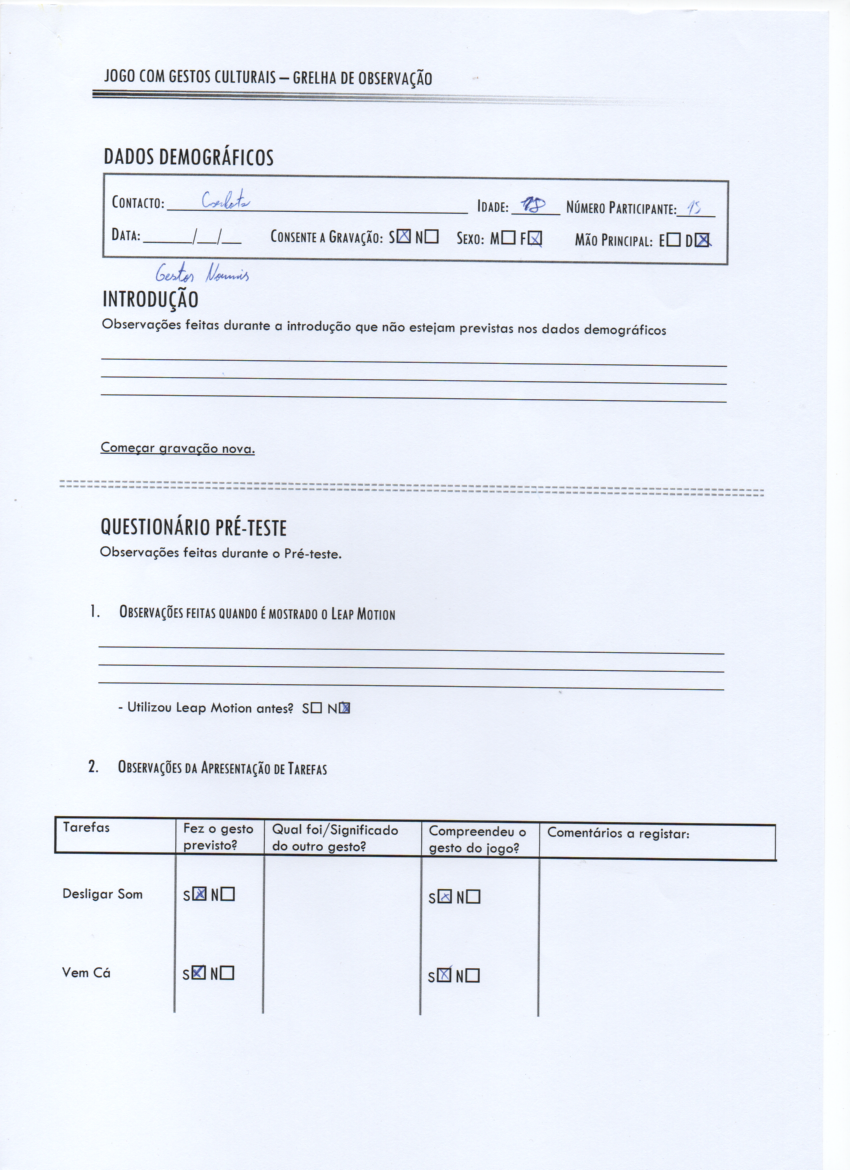 JOGO COM GESTOS CULTURAIS – GRELHA DE OBSERVAÇÃO
DADOS DEMOGRÁFICOS
CONTACTO: IDADE: NÚMERO PARTICIPANTE:
DATA: ______/__/__ CONSENTE A GRAVAÇÃO: S☒ N☐ SEXO: M☐ F☒ MÃO PRINCIPAL: E☐ D☒
Gestos Normais
INTRODUÇÃO
Observações feitas durante a introdução que não estejam previstas nos dados demográficos
Começar gravação nova.
QUESTIONÁRIO PRÉ-TESTE
Observações feitas durante o Pré-teste.
1. OBSERVAÇÕES FEITAS QUANDO É MOSTRADO O LEAP MOTION
- Utilizou Leap Motion antes? S☐ N☒
2. OBSERVAÇÕES DA APRESENTAÇÃO DE TAREFAS
Tarefas Fez o gesto previsto? Qual foi/Significado do outro gesto? Compreendeu o gesto do jogo? Comentários a registar:
Desligar Som S☒ N☐ S☒ N☐
Vem Cá S☒ N☐ S☒ N☐